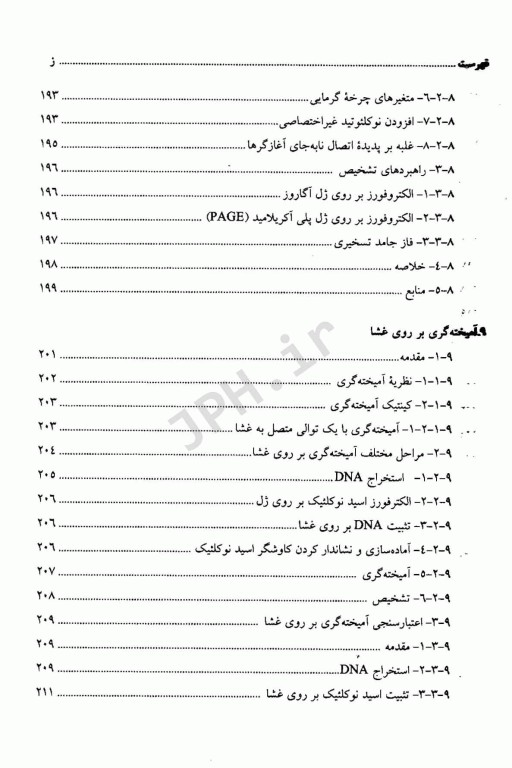 فهرست ........ ز
۸-۲-۶- متغیرهای چرخهٔ گرمایی ........ ۱۹۳
۸-۲-۷- افزودن نوکلئوتید غیراختصاصی ........ ۱۹۳
۸-۲-۸- غلبه بر پدیدهٔ اتصال نابه‌جای آغازگرها ........ ۱۹۵
۸-۳- راهبردهای تشخیص ........ ۱۹۶
۸-۳-۱- الکتروفورز بر روی ژل آگاروز ........ ۱۹۶
۸-۳-۲- الکتروفورز بر روی ژل پلی آکریلامید (PAGE) ........ ۱۹۶
۸-۳-۳- فاز جامد تسخیری ........ ۱۹۷
۸-۴- خلاصه ........ ۱۹۸
۸-۵- منابع ........ ۱۹۹
۹.آمیخته‌گری بر روی غشا
۹-۱- مقدمه ........ ۲۰۱
۹-۱-۱- نظریهٔ آمیخته‌گری ........ ۲۰۲
۹-۱-۲- کینتیک آمیخته‌گری ........ ۲۰۳
۹-۱-۲-۱- آمیخته‌گری با یک توالی متصل به غشا ........ ۲۰۳
۹-۲- مراحل مختلف آمیخته‌گری بر روی غشا ........ ۲۰۴
۹-۲-۱- استخراج DNA ........ ۲۰۵
۹-۲-۲- الکترفورز اسید نوکلئیک بر روی ژل ........ ۲۰۶
۹-۲-۳- تثبیت DNA بر روی غشا ........ ۲۰۶
۹-۲-۴- آماده‌سازی و نشاندار کردن کاوشگر اسید نوکلئیک ........ ۲۰۶
۹-۲-۵- آمیخته‌گری ........ ۲۰۷
۹-۲-۶- تشخیص ........ ۲۰۸
۹-۳- اعتبارسنجی آمیخته‌گری بر روی غشا ........ ۲۰۹
۹-۳-۱- مقدمه ........ ۲۰۹
۹-۳-۲- استخراج DNA ........ ۲۰۹
۹-۳-۳- تثبیت اسید نوکلئیک بر روی غشا ........ ۲۱۱
JPH.ir